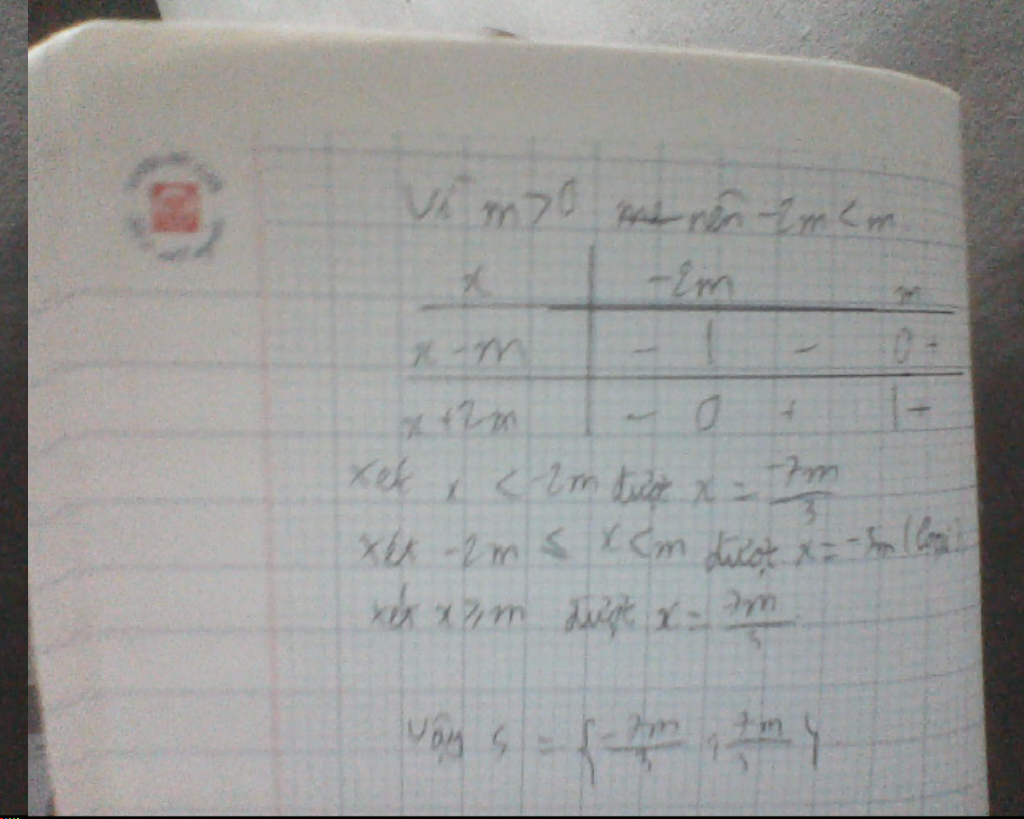 Vì m > 0 nên -2m < m
x | -2m m
x - m | - | - 0 +
x + 2m | - 0 + | +
xét x < -2m được x = -7m/3
xét -2m ≤ x < m được x = -5m (loại)
xét x ≥ m được x = 7m/3
Vậy S = { -7m/3 ; 7m/3 }